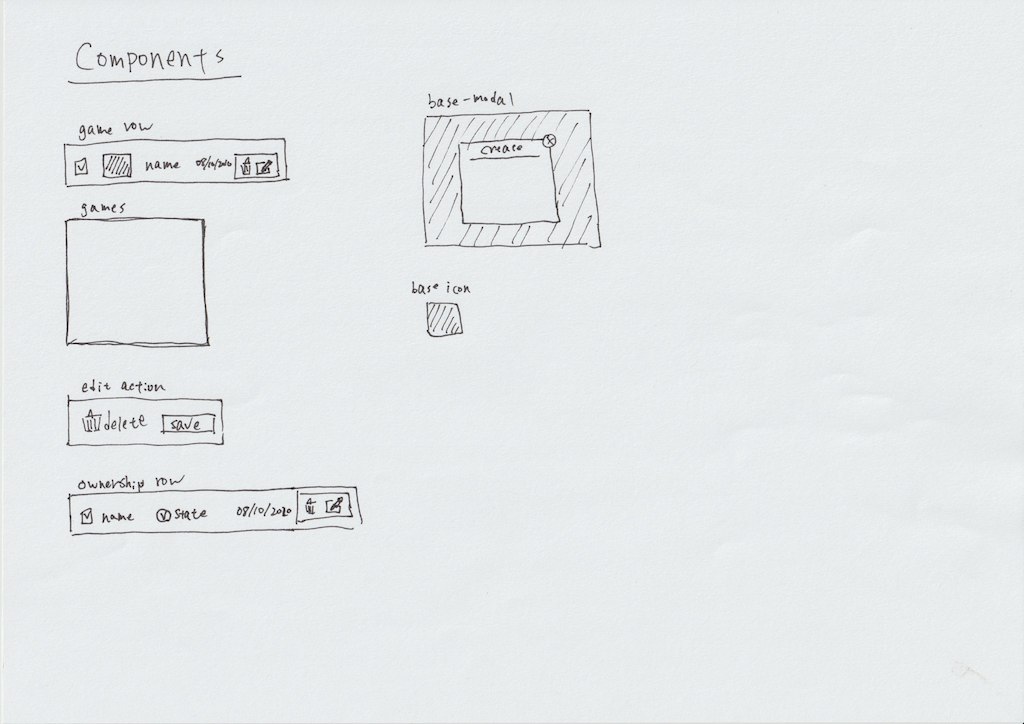 Components
game row
name 08/10/2020
games
edit action
delete save
ownership row
name state 08/10/2020
base-modal
create
base icon